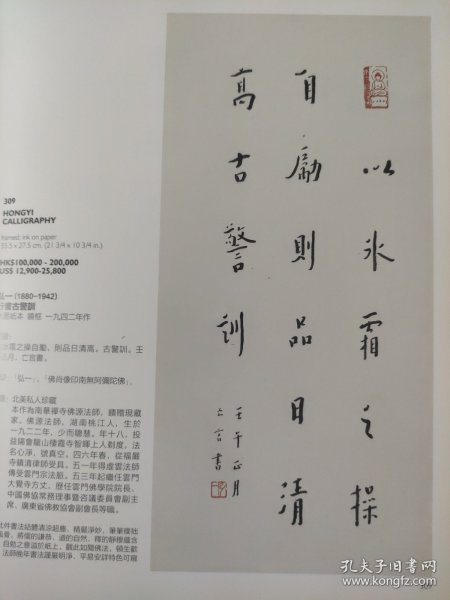 以氷霜之操
自勵則品日清
高古警訓
壬午正月
亡言書
309
HONGYI
CALLIGRAPHY
framed; ink on paper
55.5 x 27.5 cm. (21 3/4 x 10 3/4 in.)
HK$100,000 - 200,000
US$ 12,900-25,800
弘一 (1880-1942)
行書古警訓
水墨紙本 鏡框 一九四二年作
冰霜之操自勵、則品日清高。古警訓。壬
正月、亡言書。
「弘一」、「佛肖像印南無阿彌陀佛」。
北美私人珍藏
本作為南華禪寺佛源法師，饋贈現藏
家。佛源法師，湖南桃江人，生於
一九二二年，少而聰慧。年十八，投
益陽會龍山棲霞寺智暉上人剃度，法
名心淨，號真空。四六年春，從福嚴
寺鎮清律師受具。五一年得虛雲法師
傳受雲門宗法脈。五三年起繼任雲門
大覺寺方丈，歷任雲門佛學院院長、
中國佛協常務理事暨咨議委員會副主
席、廣東省佛教協會副會長等職。
此件書法結體清涼超塵、精嚴淨妙，筆筆穩拙
自勉之意溢於紙上，觀此如聞佛法，頓生歡
法師晚年書法謹嚴明淨，平易安詳特色可窺
孔夫子旧书网